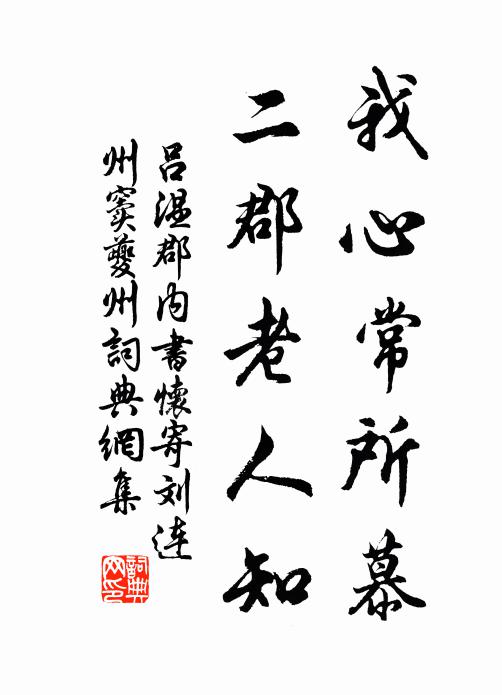 我心常所慕
二郡老人知
吕温郡内书怀寄刘连
州窦夔州词典网集
词典网印